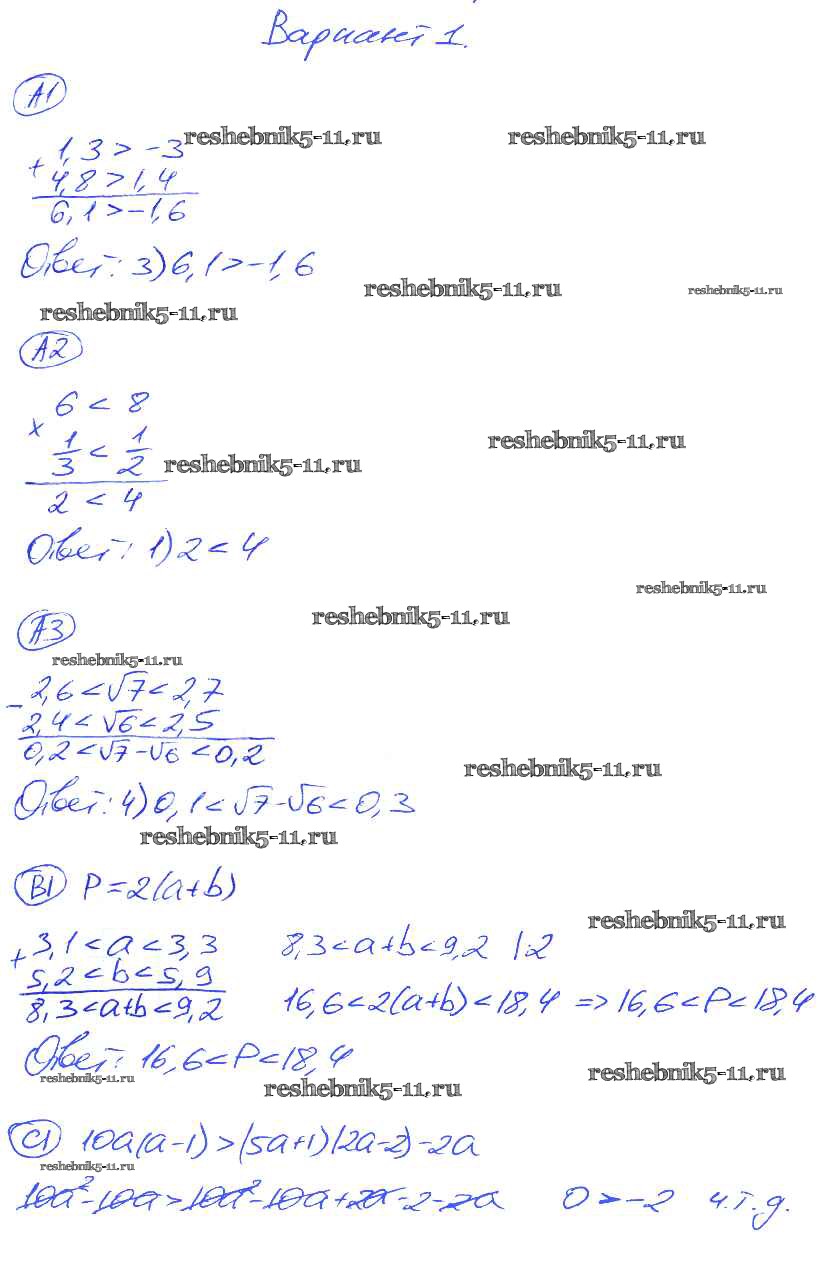 Вариант 1.
А1
1,3 > -3 reshebnik5-11.ru reshebnik5-11.ru
+
4,8 > 1,4
6,1 > -1,6
Ответ: 3) 6,1 > -1,6
reshebnik5-11.ru reshebnik5-11.ru
reshebnik5-11.ru
А2
6 < 8
×
1/3 < 1/2 reshebnik5-11.ru
reshebnik5-11.ru
2 < 4
Ответ: 1) 2 < 4
reshebnik5-11.ru
reshebnik5-11.ru
А3
reshebnik5-11.ru
- 2,6 < √7 < 2,7
2,4 < √6 < 2,5
0,2 < √7 - √6 < 0,2
reshebnik5-11.ru
Ответ: 4) 0,1 < √7 - √6 < 0,3
reshebnik5-11.ru
В1 P = 2(a+b)
reshebnik5-11.ru
+ 3,1 < a < 3,3 8,3 < a+b < 9,2 |·2
5,2 < b < 5,9
8,3 < a+b < 9,2 16,6 < 2(a+b) < 18,4 => 16,6 < P < 18,4
Ответ: 16,6 < P < 18,4
reshebnik5-11.ru reshebnik5-11.ru reshebnik5-11.ru
С1 10a(a-1) > (5a+1)(2a-2) - 2a
reshebnik5-11.ru
10a² - 10a > 10a² - 10a + 2a - 2 - 2a 0 > -2 ч.т.д.